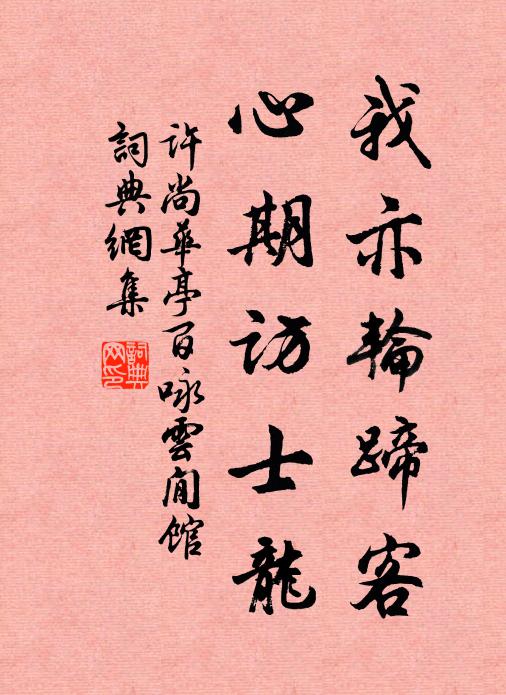 我亦輪蹄客
心期訪士龍
許尚華亭百咏雲間館
詞典網集
詞典網印